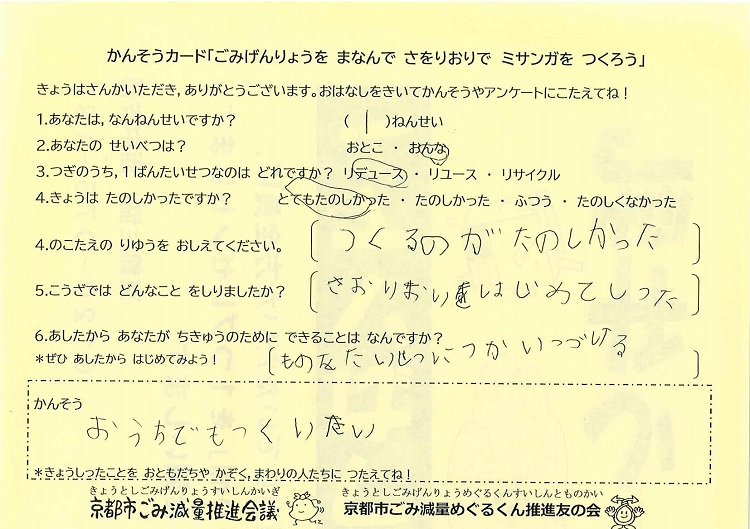 かんそうカード「ごみげんりょうを まなんで さをりおりで ミサンガを つくろう」
きょうはさんかいただき，ありがとうございます。おはなしをきいてかんそうやアンケートにこたえてね！
1.あなたは，なんねんせいですか？ （ 1 ）ねんせい
2.あなたの せいべつは？ おとこ ・ おんな
3.つぎのうち，1ばんたいせつなのは どれですか？ リデュース ・ リユース ・ リサイクル
4.きょうは たのしかったですか？ とてもたのしかった ・ たのしかった ・ ふつう ・ たのしくなかった
4.のこたえの りゆうを おしえてください。 〔つくるのがたのしかった〕
5.こうざでは どんなこと をしりましたか？ 〔さおりおりをはじめてしった〕
6.あしたから あなたが ちきゅうのために できることは なんですか？
*ぜひ あしたから はじめてみよう！ 〔ものをたいせつにつかいつづける〕
かんそう
おうちでもつくいたい
*きょうしったことを おともだちや かぞく，まわりの人たちに つたえてね！
きょうとしごみげんりょうすいしんかいぎ きょうとしごみげんりょうめぐるくんすいしんとものかい
京都市ごみ減量推進会議 京都市ごみ減量めぐるくん推進友の会